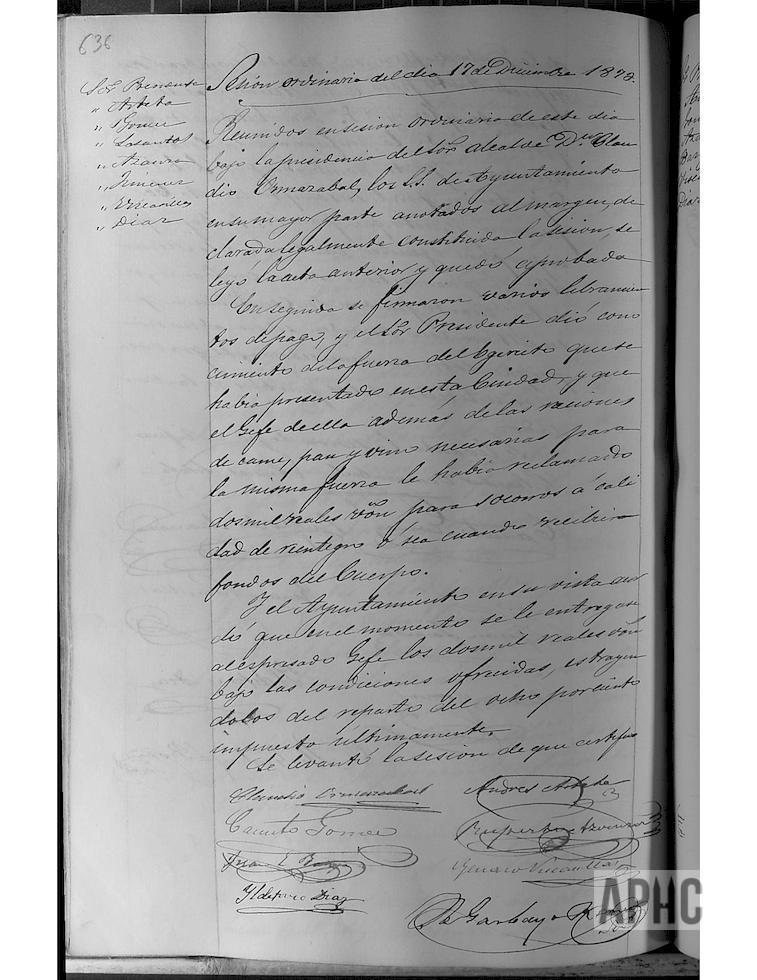 636
Sesion ordinaria del dia 17 de Diciembre 1873.
Sor Presidente
" Arteta
" Gomez
" Losantos
" Azcona
" Jimenez
" Diaz
Reunidos en sesion ordinaria de este dia
bajo la presidencia del Sor Alcalde Dn Clau
dio Ormazabal, los S.S. de Ayuntamiento
en su mayor parte anotados al margen, de
clarada legalmente constituida la sesion, se
leyó la acta anterior y quedó aprobada
En seguida se firmaron varios libramien
tos de pago, y el Sor Presidente dió cono
cimiento de la fuerza del Egercito que se
habia presentado en esta Ciudad, y que
el Gefe de ella además de las raciones
de carne, pan y vino necesarias para
la misma fuerza le habia reclamado
dosmil reales von para socorros á cali
dad de reintegro ó sea cuando recibiera
fondos del Cuerpo.
Y el Ayuntamiento en su vista acor
dó que en el momento se le entregaran
al espresado Gefe los dosmil reales von
bajo las condiciones ofrecidas, estrayen
dolos del reparto del ocho por ciento
impuesto ultimamente.
Se levantó la sesion de que certifico
Claudio Ormazabal
Andres Arteta
Canuto Gomez
Ruperto Azcona
Genaro
Yldefonso Diaz
Garbayo
APHC